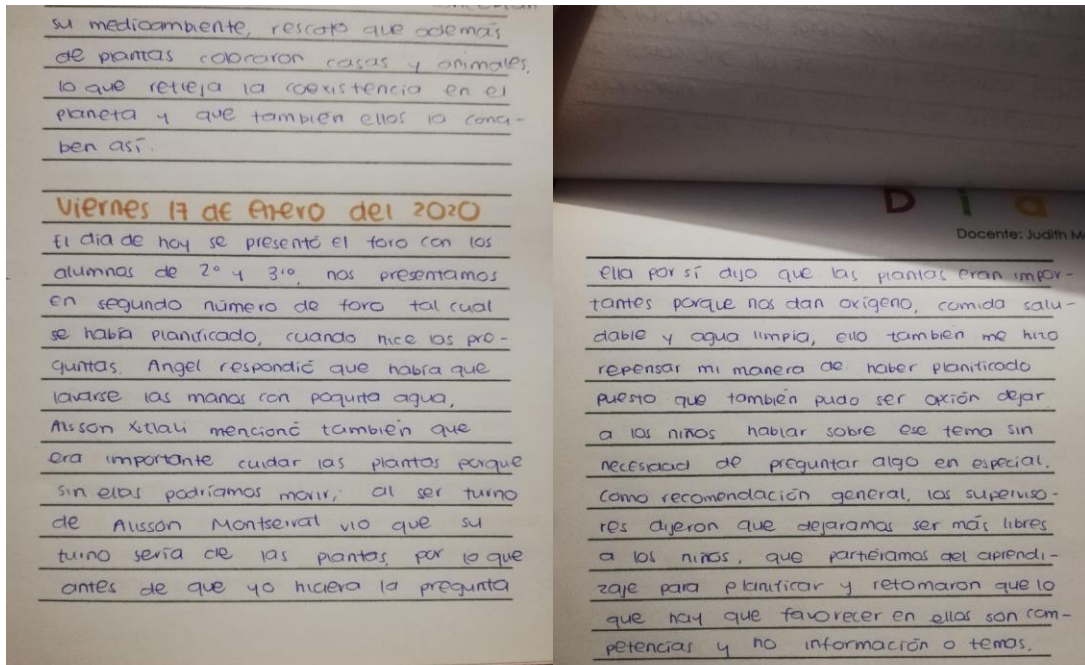 su medioambiente, rescato que además
de plantas colocaron casas y animales,
lo que refleja la coexistencia en el
planeta y que también ellos lo conci-
ben así.
Viernes 17 de Enero del 2020
El día de hoy se presentó el foro con los
alumnos de 2° y 3ro, nos presentamos
en segundo número de foro tal cual
se había planificado, cuando hice las pre-
guntas. Angel respondió que había que
lavarse las manos con poquita agua,
Alisson Xitlali mencionó también que
era importante cuidar las plantas porque
sin ellas podríamos morir, al ser turno
de Alisson Montserrat vio que su
turno sería de las plantas, por lo que
antes de que yo hiciera la pregunta
Día
Docente: Judith M
ella por sí dijo que las plantas eran impor-
tantes porque nos dan oxígeno, comida salu-
dable y agua limpia, ello también me hizo
repensar mi manera de haber planificado
puesto que también pudo ser opción dejar
a los niños hablar sobre ese tema sin
necesidad de preguntar algo en especial.
Como recomendación general, los superviso-
res dijeron que dejaramos ser más libres
a los niños, que partiéramos del aprendi-
zaje para planificar y retomaron que lo
que hay que favorecer en ellos son com-
petencias y no información o temas.